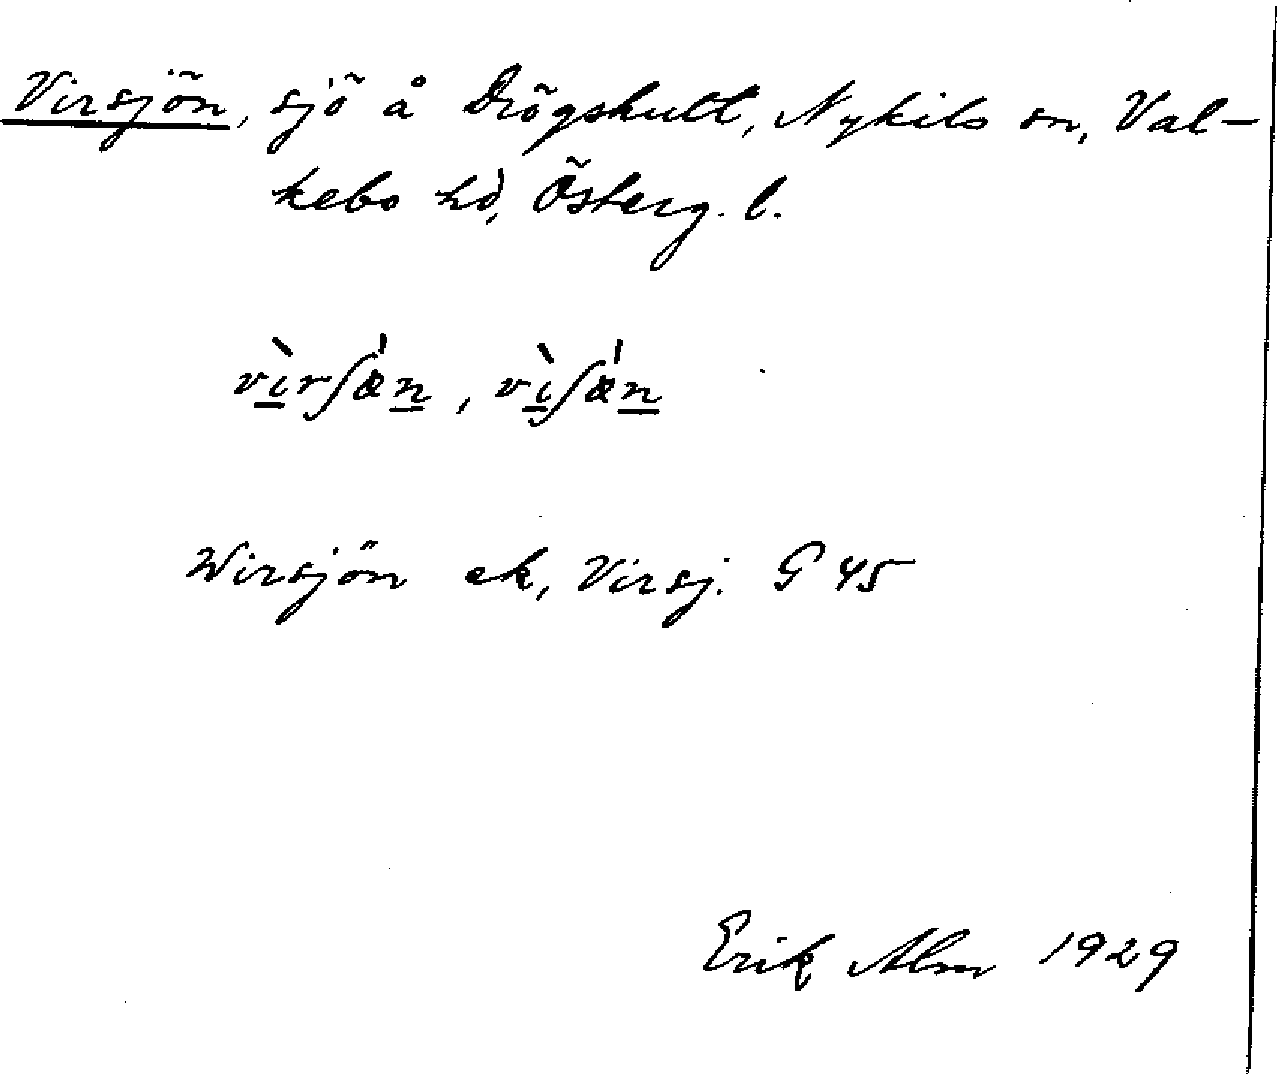 Virsjön, sjö å Drögshult, Nykils sn, Val-
kebo hd, Österg. l.
vìrʃæ̍n, vìʃæ̍n
Wirsjön ek, Virsj. G 45
Erik Alm 1929